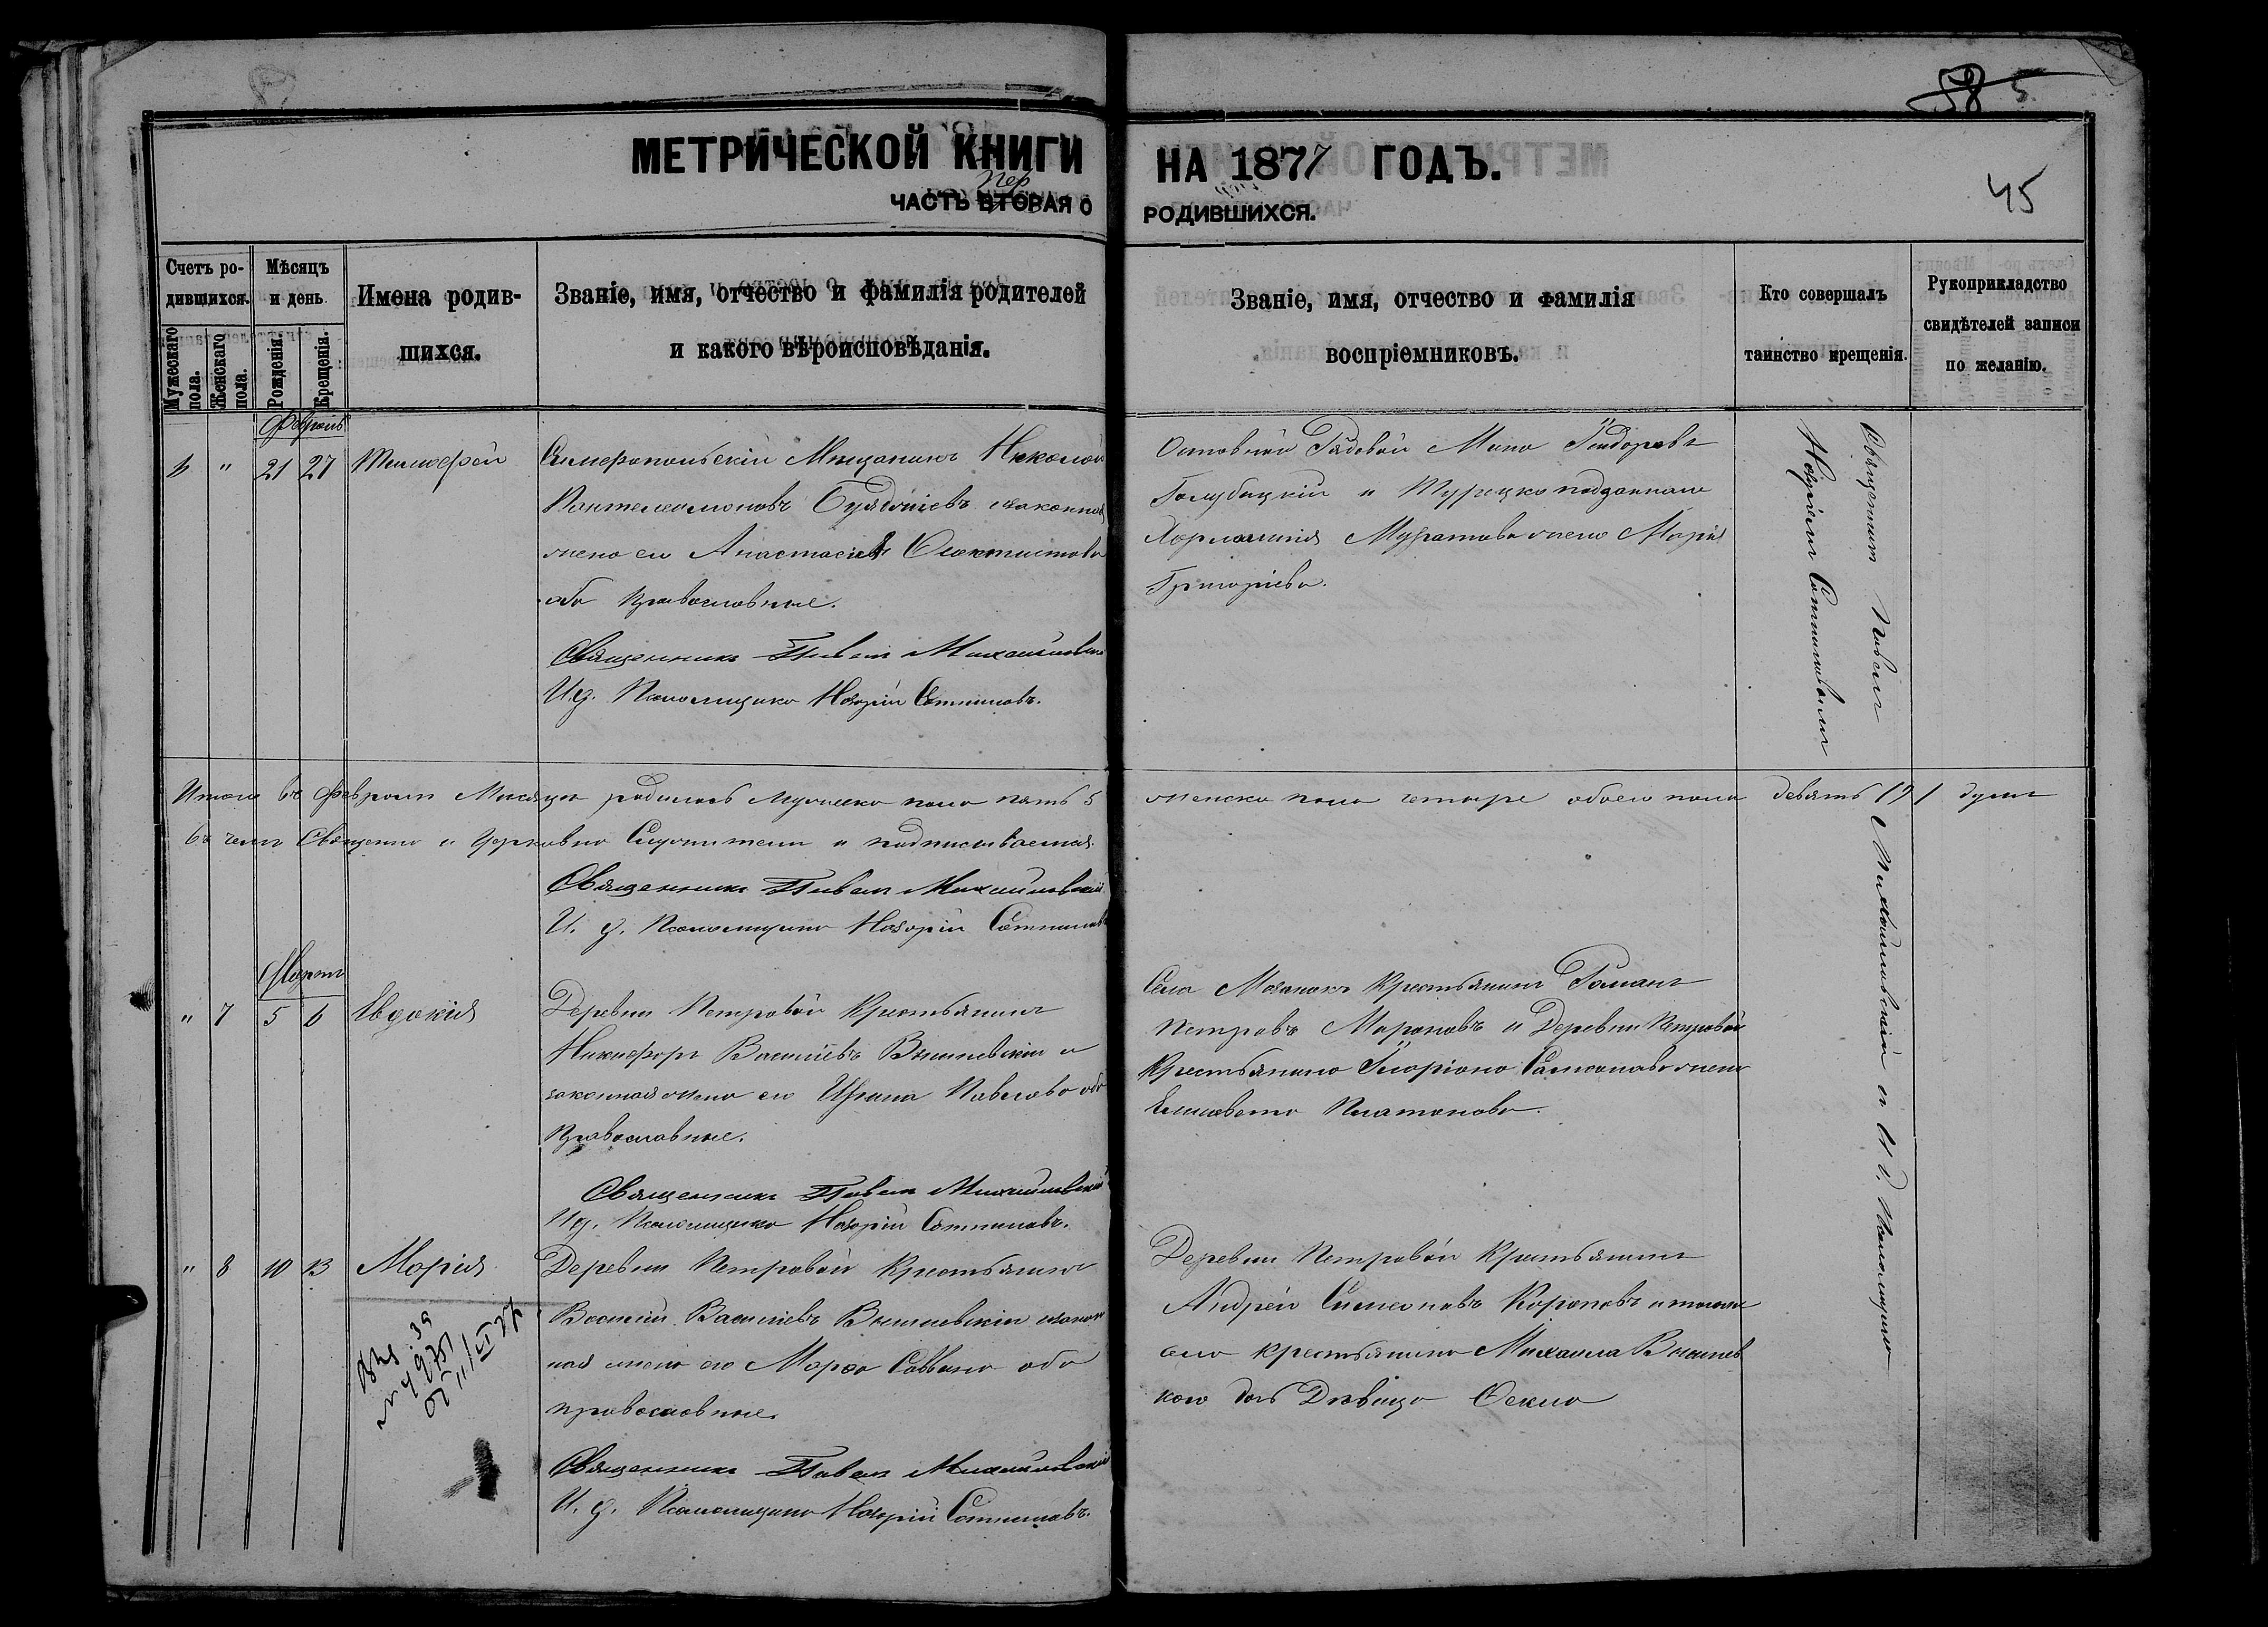 58 5
МЕТРИЧЕСКОЙ КНИГИ НА 1877 ГОДЪ.
пер
ЧАСТЬ ВТОРАЯ О РОДИВШИХСЯ.
45
Счетъ родившихся.
Мужескаго пола.
Женскаго пола.
Мѣсяцъ и день
Рожденія.
Крещенія.
Имена родив-
шихся.
Званіе, имя, отчество и фамилія родителей
и какого вѣроисповѣданія.
Званіе, имя, отчество и фамилія
воспріемниковъ.
Кто совершалъ
таинство крещенія.
Рукоприкладство
свидѣтелей записи
по желанію.
Февраль
" 21 27 Тимофей
Симферопольскій Мещанинъ Николай
Пантелеимоновъ законная
жена его Анастасія Феоктистова
оба православные.
Священникъ Павелъ Михайловскій
И.д. Псаломщика Назарій Сотниковъ.
Отставной Рядовой Мина Fиодоровъ
Голубицкій и Турецко подданнаго
Муратова жена Марія
Григоріева.
Священникъ Павелъ Михайловскій и И. д. Псаломщика
Назарій Сотниковъ
Итого въ Февралѣ Мѣсяцѣ родилось Мужеска пола пять 5 женска пола четыре обоего пола девять (9) душъ
въ чемъ Священно и Церковно Служители и подписываемся.
Священникъ Павелъ Михайловскій
И. д. Псаломщика Назарій Сотниковъ
Мартъ
" 7 5 6 Евдокія
Деревни Петровой Крестьянинъ
Никифоръ Василіевъ Вышневскій и
законная жена его Ирина Павлова оба
Православные.
Священникъ Павелъ Михайловскій
И.д. Псаломщика Назарій Сотниковъ.
Села Мазанокъ Крестьянинъ Романъ
Петровъ Мироновъ и Деревни Петровой
Крестьянина Иларіона Самсонова жена
Елисавета Платонова.
" 8 10 13 Марія
Деревни Петровой Крестьянинъ
Василій Василіевъ Вышневскій и закон
ная жена его Марѳа Саввина оба
православные.
Священникъ Павелъ Михайловскій
И. д. Псаломщика Назарій Сотниковъ.
Деревни Петровой Крестьянинъ
Андрей Симеоновъ Короповъ и тогоже
села крестьянина Михаила Вышнев
кого дочь Дѣвица Ѳекла